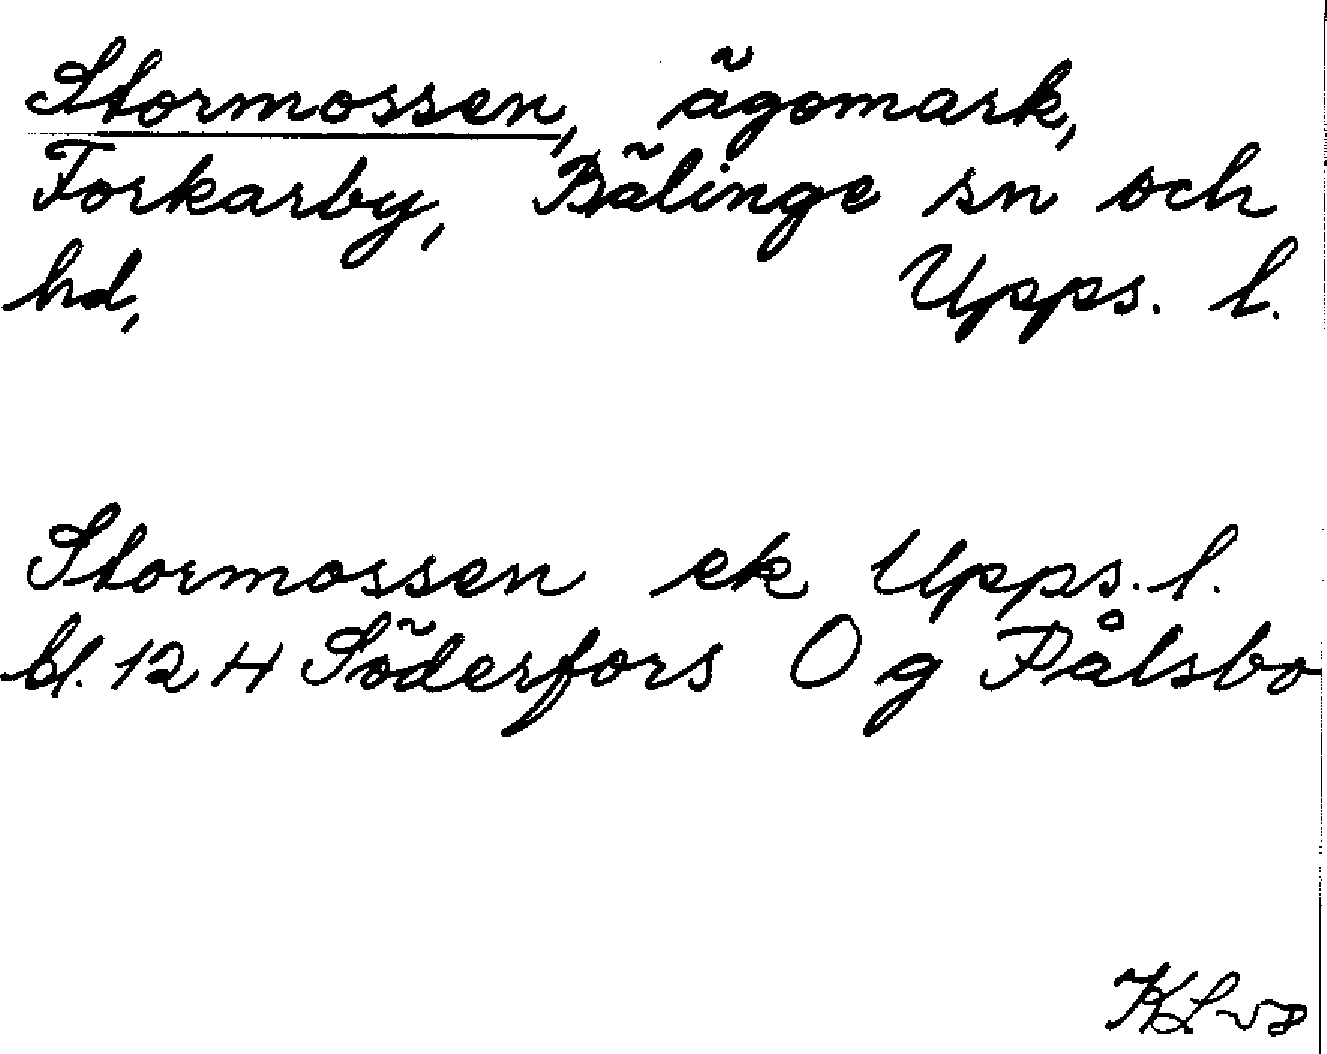 Stormossen, ägomark,
Forkarby, Bälinge sn och
hd, Upps. l.
Stormossen ek Upps. l.
bl. 12 H Söderfors O g Pålsbo